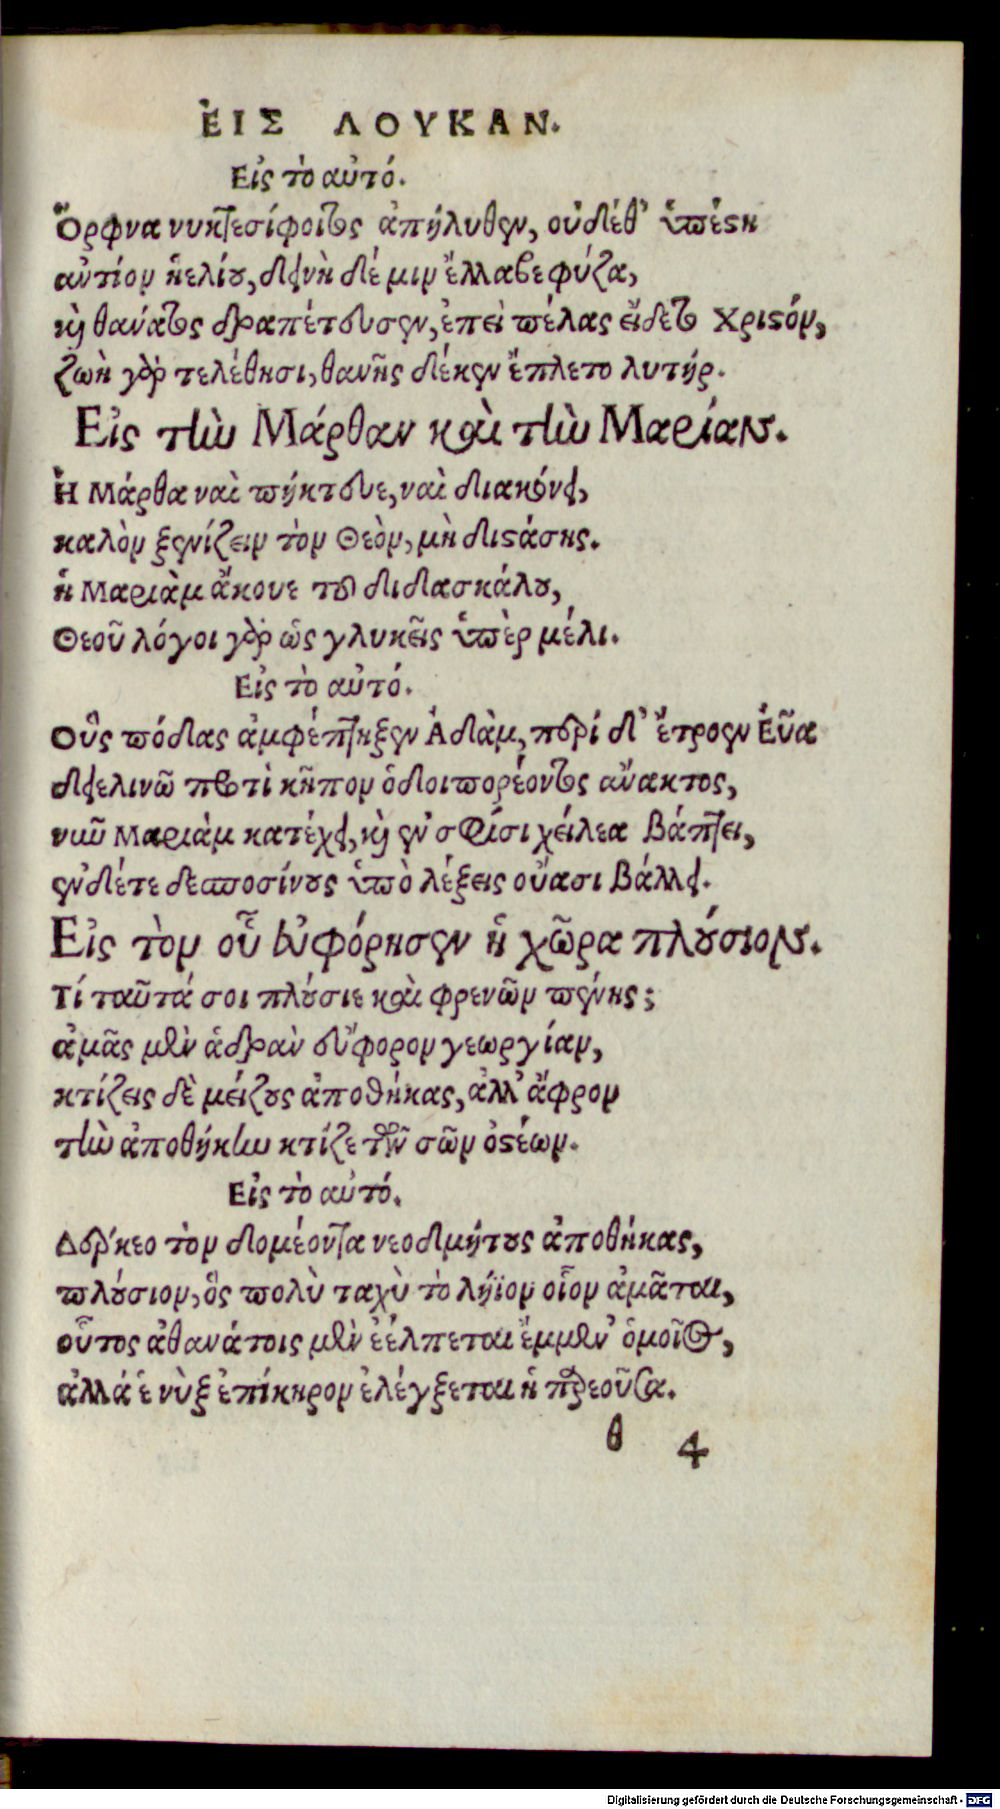 ἘΙΣ ΛΟΥΚΑΝ.
Εἰς τὸ αὐτό.
Ὄρφνα νυκτεσίφοιτος ἀπήλυθεν, οὐδέθ' ὑπέστη
αὐτίον ἡελίου, δεινὴ δέ μιν ἔλλαβε φύζα,
καὶ θανάτος δραπέτευσεν, ἐπεὶ πέλας εἴδετο Χριστόν,
ζωὴ γὰρ τελέθησι, θανῆς δέκεν ἔπλετο λυτήρ.
Εἰς τὴν Μάρθαν καὶ τὴν Μαρίαν.
Ἡ Μάρθα ναὶ πύκτευε, ναὶ διακόνει,
καλὸν ξενίζειν τὸν Θεὸν, μὴ διστάσῃς.
ἡ Μαριὰμ ἄκουε τοῦ διδασκάλου,
Θεοῦ λόγοι γὰρ ὡς γλυκεῖς ὑπὲρ μέλι.
Εἰς τὸ αὐτό.
Οὓς πόδας ἀμφέπτηξεν Ἀδὰμ, περί δ' ἔτρεσεν Εὖα
δειελινῶ προτὶ κῆπον ὁδοιπορέοντος ἄνακτος,
νῦν Μαριὰμ κατέχει, καὶ ἐν σφίσι χείλεα βάπτει,
ἐν δέτε δεσποσίνους ὑπὸ λέξεις οὔασι βάλλει.
Εἰς τὸν οὗ εὐφόρησεν ἡ χῶρα πλούσιον.
Τί ταῦτά σοι πλούσιε καὶ φρενῶν πένης;
ἀμᾶς μὲν ἁδρὰν εὔφορον γεωργίαν,
κτίζεις δὲ μείζους ἀποθήκας, ἀλλ' ἄφρον
τὴν ἀποθήκην κτίζε τῶν σῶν ὀστέων.
Εἰς τὸ αὐτό.
Δέρκεο τὸν δομέοντα νεοδμήτους ἀποθήκας,
πλούσιον, ὃς πολὺ ταχὺ τὸ λήϊον οἷον ἀμᾶται,
οὗτος ἀθανάτοις μὲν ἐέλπεται ἔμμεν' ὁμοῖος,
ἀλλά ἑ νὺξ ἐπίκηρον ἐλέγξεται ἡ παρεοῦσα.
θ 4
Digitalisierung gefördert durch die Deutsche Forschungsgemeinschaft - DFG